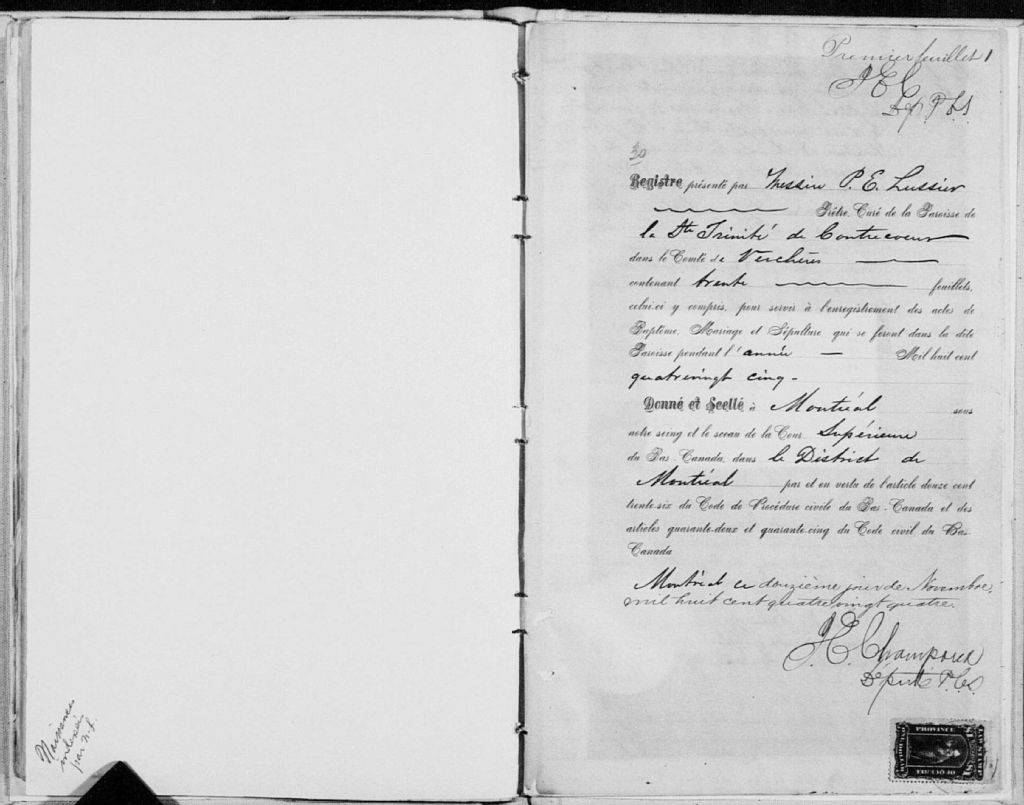 Premier feuillet 1
J E C
Dép P.C.S.
30
Registre présenté par Messire P. E. Lussier
Prêtre, Curé de la Paroisse de
la Ste Trinité de Contrecoeur
dans le Comté de Verchères
contenant trente feuillets,
celui-ci y compris, pour servir à l'enregistrement des actes de
Baptême, Mariage et Sépulture, qui se feront dans la dite
Paroisse pendant l'année Mil huit cent
quatrevingt cinq.
Donné et Scellé à Montréal sous
notre seing et le sceau de la Cour Supérieure
du Bas-Canada, dans le District de
Montréal par et en vertu de l'article douze cent
trente-six du Code de Procédure civile du Bas-Canada et des
articles quarante-deux et quarante-cinq du Code civil du Bas-
Canada
Montréal ce douzième jour de Novembre,
mil huit cent quatre vingt quatre.
J. E. Champoux
Député P.C.S.
PROVINCE
OF QUEBEC
Naissances
par